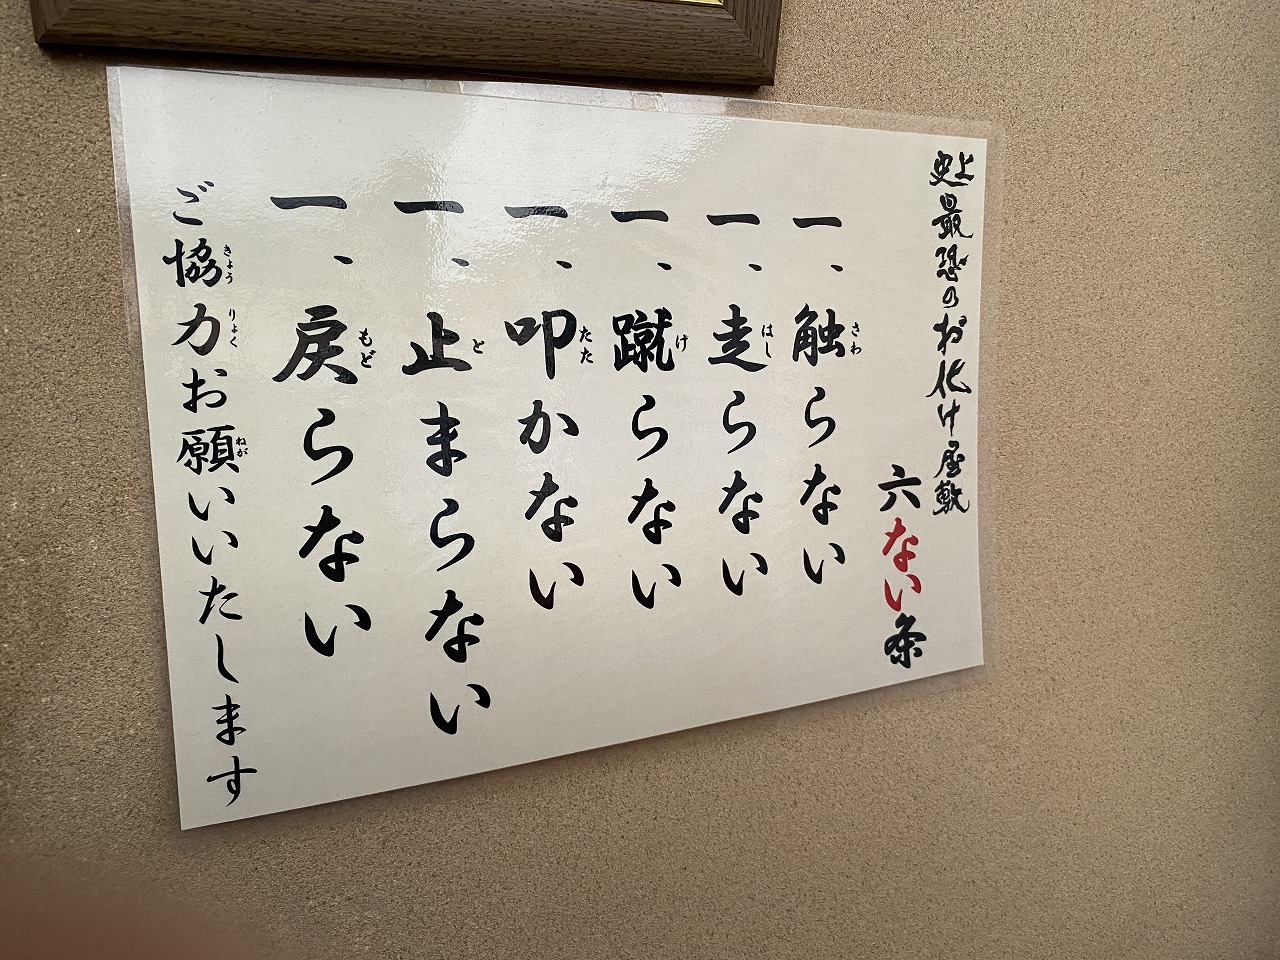 史上最恐のお化け屋敷
六ない条
一、触らない
さわ
一、走らない
はし
一、蹴らない
け
一、叩かない
たた
一、止まらない
と
一、戻らない
もど
ご協力お願いいたします
きょう りょく ねが